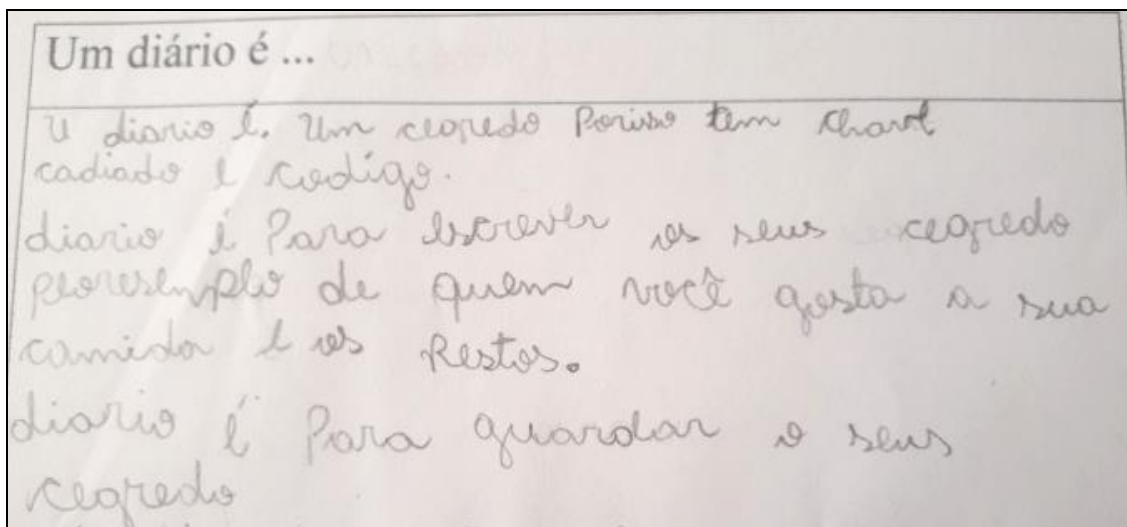 Um diário é ...
U diario é. Um cegredo Poriso tem chave
cadiado e codigo.
diario é Para escrever os seus cegredo
poresemplo de quem você gosta a sua
comida e os Restos.
diario é Para guardar o seus
cegredo